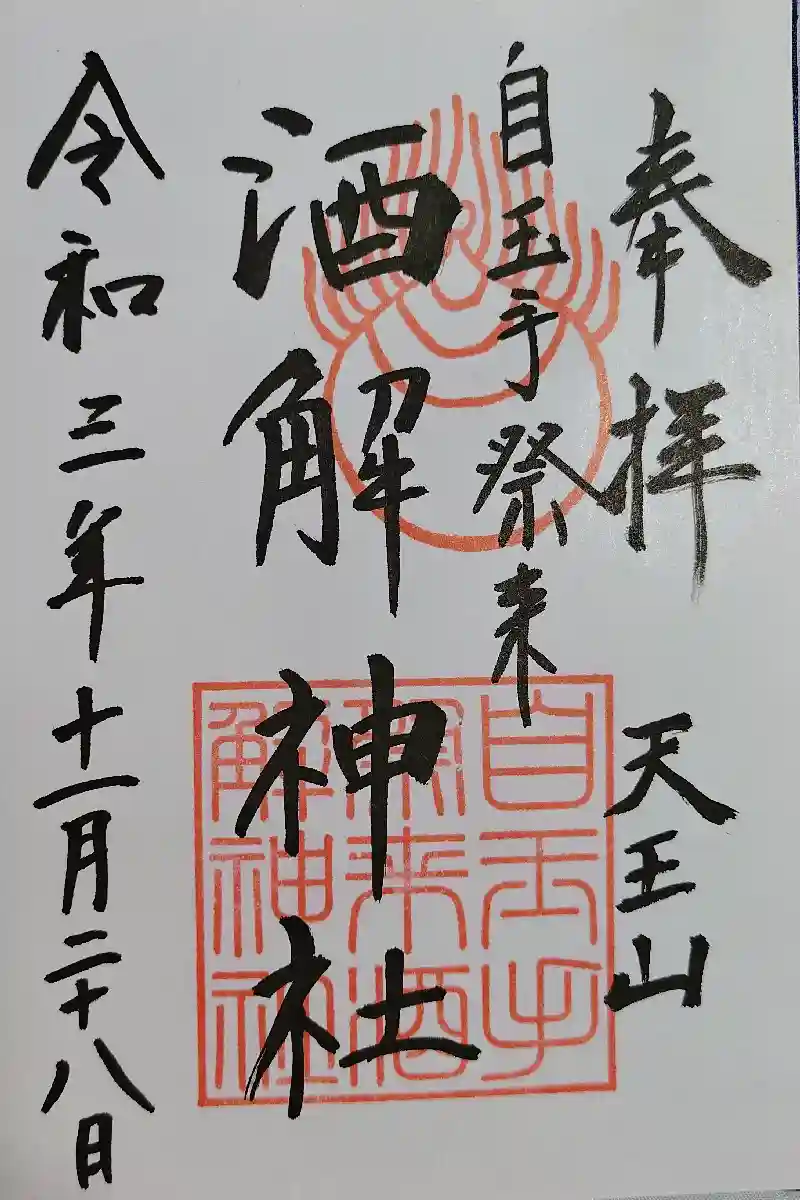 奉拝 天王山
自玉手祭来
酒解神社
令和三年十一月二十八日
自玉手
祭来酒
解神社